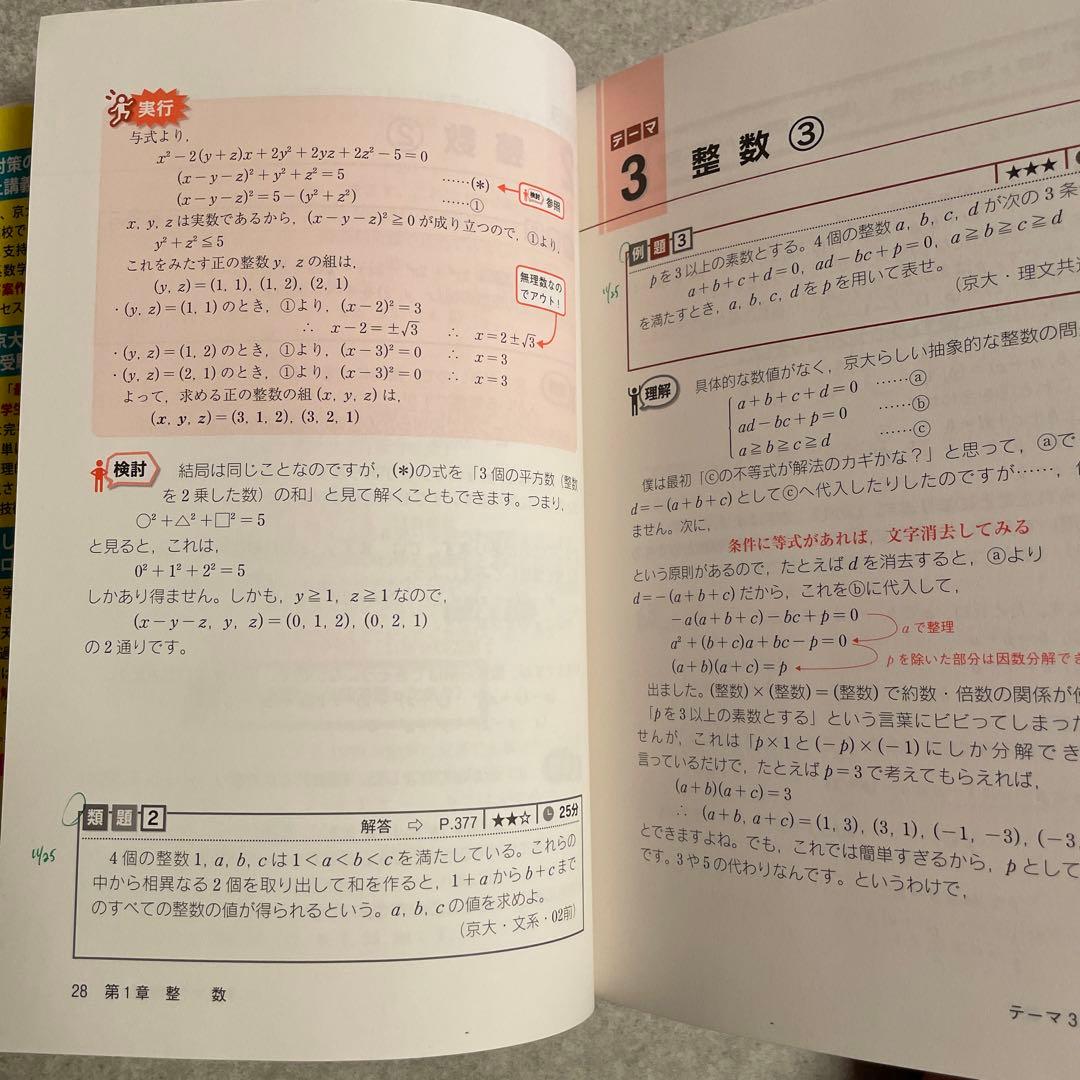 実行
与式より,
x²−2(y+z)x+2y²+2yz+2z²−5=0
(x−y−z)²+y²+z²=5 ……(*) 検討 参照
(x−y−z)²=5−(y²+z²) ……①
x, y, z は実数であるから, (x−y−z)²≧0 が成り立つので, ①より,
y²+z²≦5
これをみたす正の整数 y, z の組は,
(y, z)=(1, 1), (1, 2), (2, 1)
無理数なの
でアウト!
・(y, z)=(1, 1) のとき, ①より, (x−2)²=3
∴ x−2=±√3 ∴ x=2±√3
・(y, z)=(1, 2) のとき, ①より, (x−3)²=0 ∴ x=3
・(y, z)=(2, 1) のとき, ①より, (x−3)²=0 ∴ x=3
よって, 求める正の整数の組 (x, y, z) は,
(x, y, z)=(3, 1, 2), (3, 2, 1)
検討 結局は同じことなのですが, (*)の式を「3個の平方数 (整数
を2乗した数) の和」と見て解くこともできます。つまり,
○²+△²+□²=5
と見ると, これは,
0²+1²+2²=5
しかあり得ません。しかも, y≧1, z≧1 なので,
(x−y−z, y, z)=(0, 1, 2), (0, 2, 1)
の2通りです。
類題2 解答 ⇨ P.377 ★★☆ 25分
4個の整数 1, a, b, c は 1<a<b<c を満たしている。これらの
中から相異なる2個を取り出して和を作ると, 1+a から b+c まで
のすべての整数の値が得られるという。a, b, c の値を求めよ。
(京大・文系・02前)
28 第1章 整 数
テーマ
3 整数③
★★★
例題3
p を3以上の素数とする。4個の整数 a, b, c, d が次の3条
a+b+c+d=0, ad−bc+p=0, a≧b≧c≧d
を満たすとき, a, b, c, d を p を用いて表せ。
(京大・理文共通
理解 具体的な数値がなく, 京大らしい抽象的な整数の問
a+b+c+d=0 ……ⓐ
ad−bc+p=0 ……ⓑ
a≧b≧c≧d ……ⓒ
僕は最初「ⓒの不等式が解法のカギかな?」と思って, ⓐで
d=−(a+b+c) としてⓒへ代入したりしたのですが……,
ません。次に,
条件に等式があれば, 文字消去してみる
という原則があるので, たとえば d を消去すると, ⓐより
d=−(a+b+c) だから, これをⓑに代入して,
−a(a+b+c)−bc+p=0
a で整理
a²+(b+c)a+bc−p=0
p を除いた部分は因数分解でき
(a+b)(a+c)=p
出ました。(整数)×(整数)=(整数) で約数・倍数の関係が
「p を3以上の素数とする」という言葉にビビってしまった
せんが, これは「p×1 と (−p)×(−1) にしか分解でき
言っているだけで, たとえば p=3 で考えてもらえれば,
(a+b)(a+c)=3
∴ (a+b, a+c)=(1, 3), (3, 1), (−1, −3), (−3,
とできますよね。でも, これでは簡単すぎるから, p として
です。3や5の代わりなんです。というわけで,
テーマ3